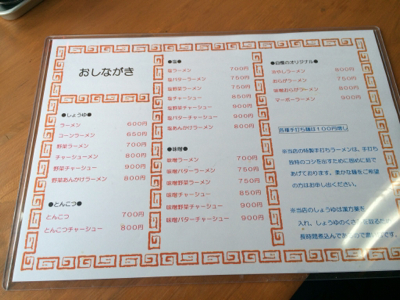 おしながき
●しょうゆ●
ラーメン 600円
コーンラーメン 650円
野菜ラーメン 700円
チャーシューメン 800円
野菜チャーシュー 900円
野菜あんかけラーメン 800円
●とんこつ●
とんこつ 700円
とんこつチャーシュー 900円
●塩●
塩ラーメン 700円
塩バターラーメン 750円
塩野菜ラーメン 750円
塩チャーシュー 850円
塩野菜チャーシュー 900円
塩バターチャーシュー 900円
塩あんかけラーメン 800円
●味噌●
味噌ラーメン 700円
味噌バターラーメン 750円
味噌野菜ラーメン 750円
味噌チャーシュー 850円
味噌野菜チャーシュー 900円
味噌バターチャーシュー 900円
●自慢のオリジナル●
ラーメン 800円
ラーメン 750円
味噌 ラーメン 800円
マーボーラーメン 900円
手打ち麺は100円増し
※当店の特製手打ちラーメンは、手打ち
独特のコシを出すために固めに茹で
あげております。柔かな麺をご希望
の方はお申し出ください。
※当店のしょうゆは漢方薬を
入れ、しょうゆのくさみを取るため
長時間煮込んで です。